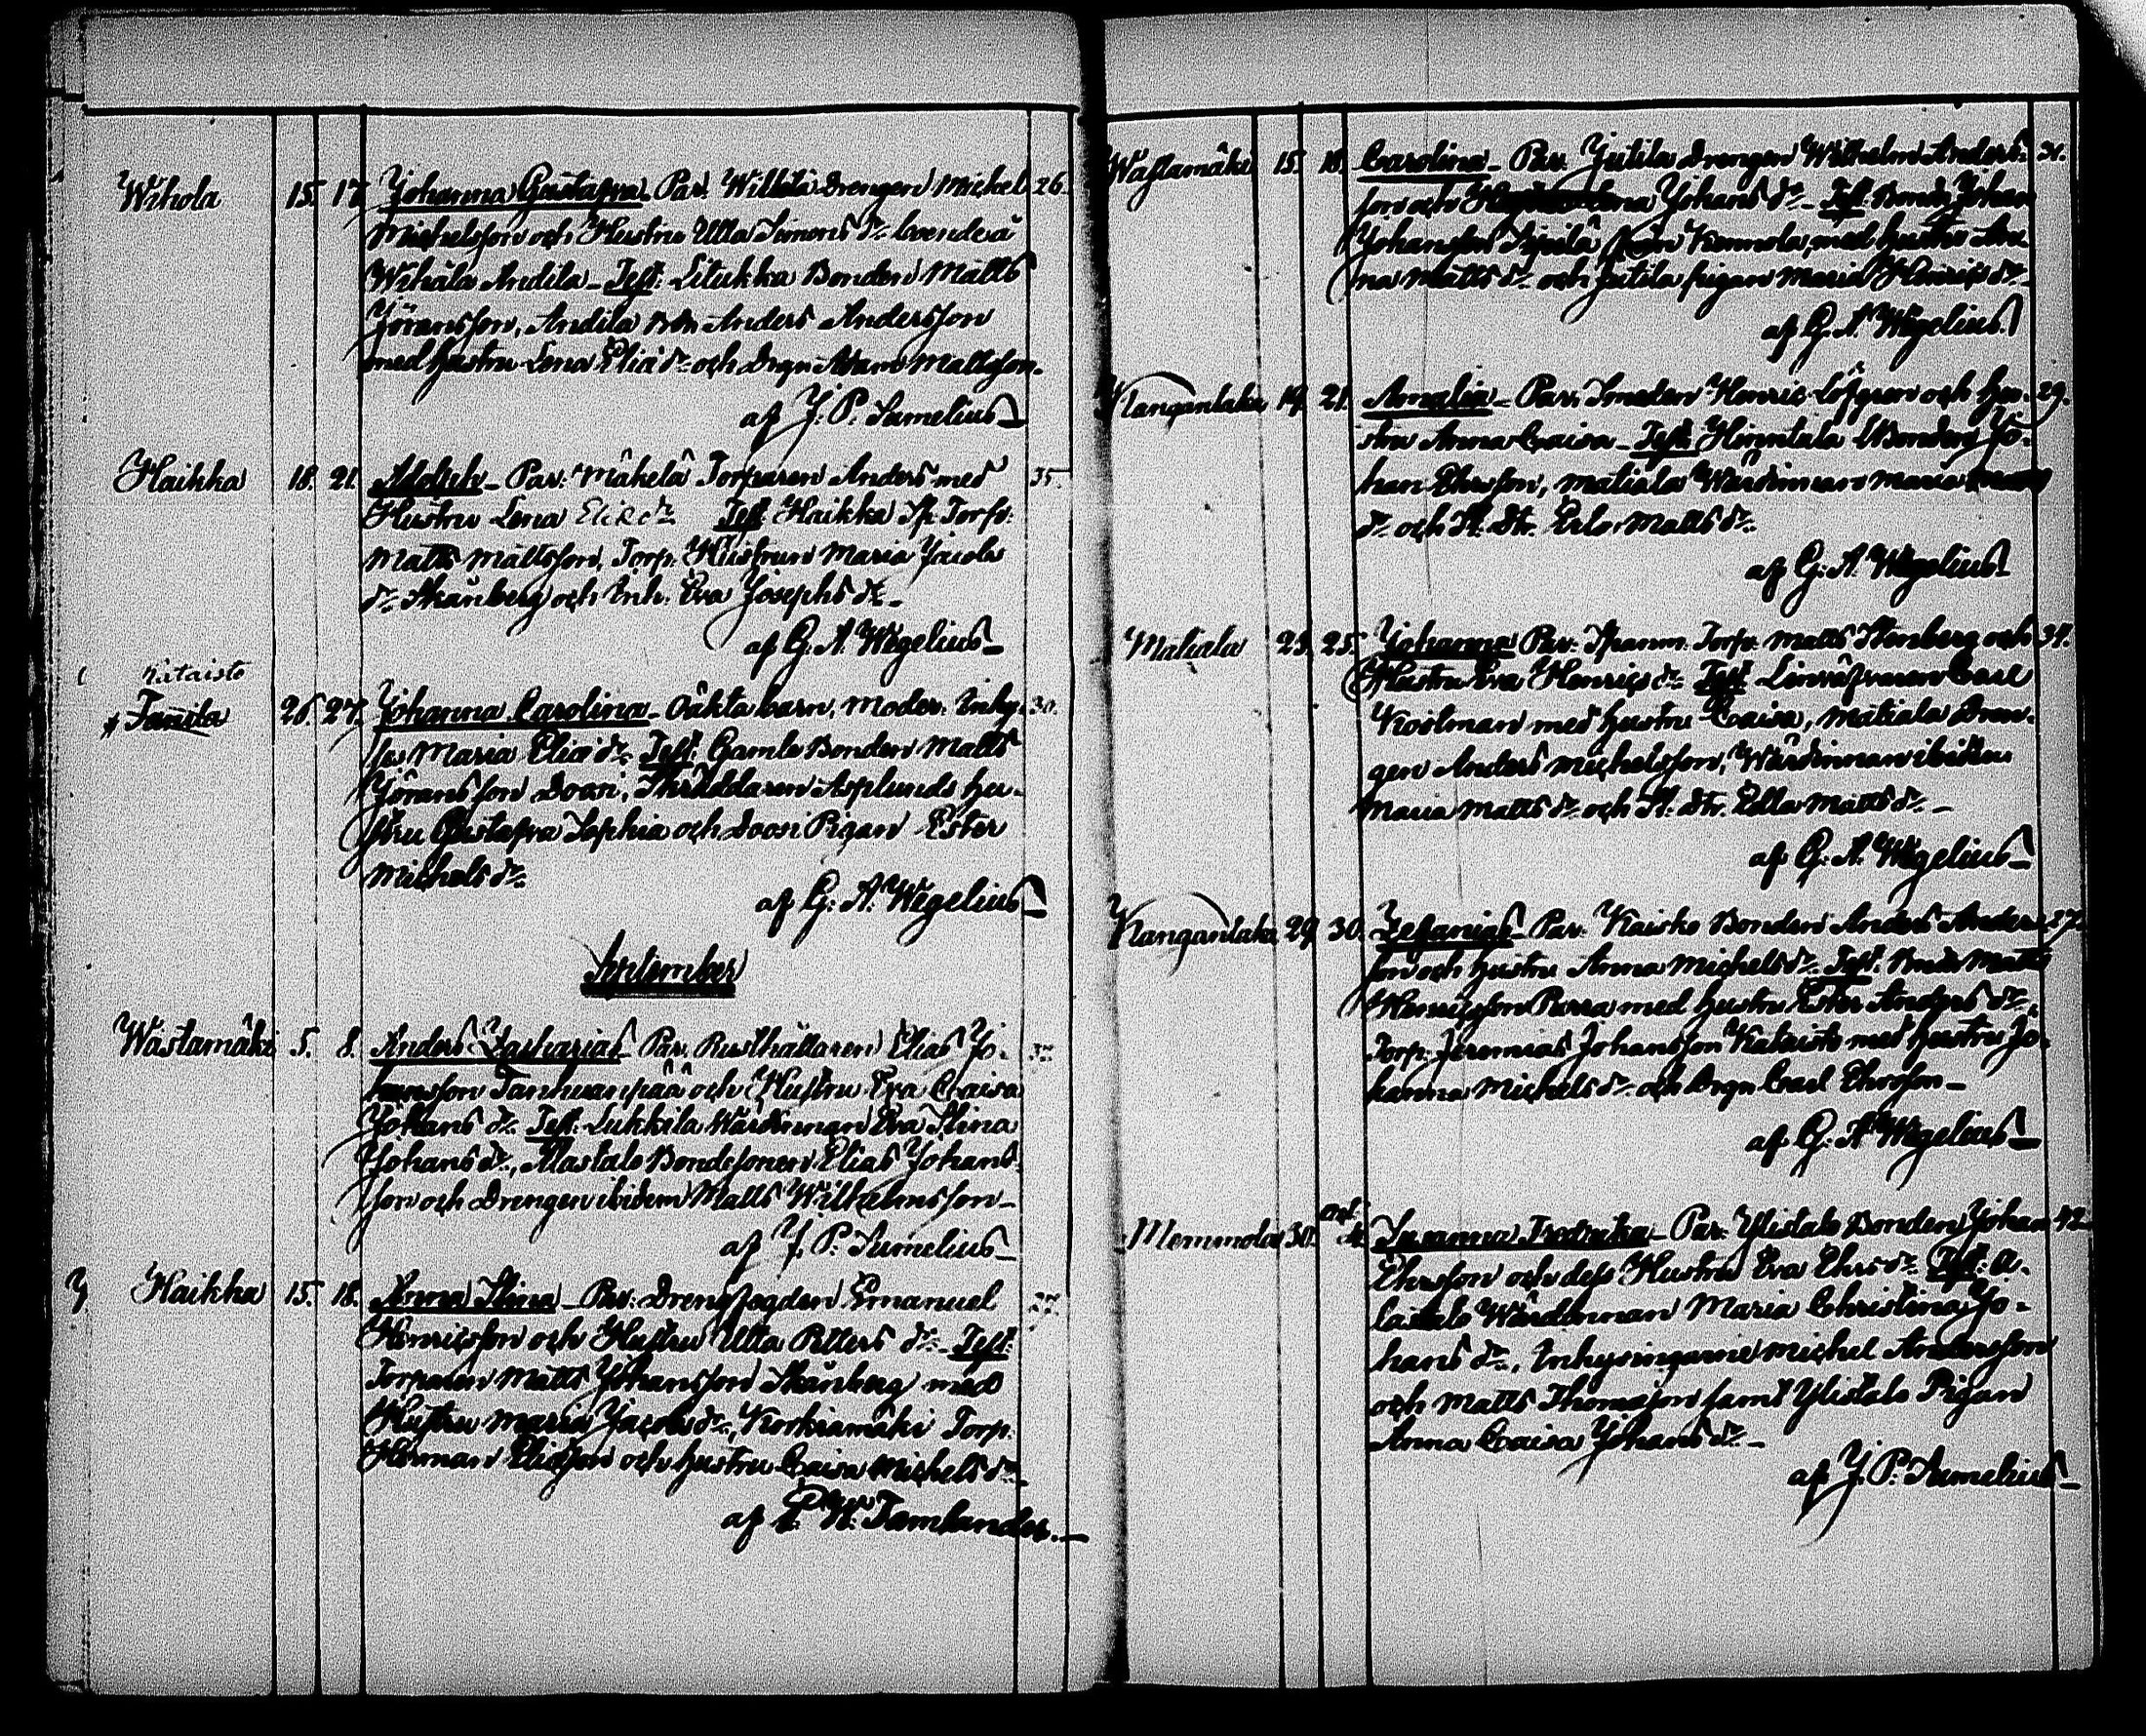 Wihola 15. 17. Johanna Gustafva _ Par. Wihola Drengen Michel 26.
Michelsson och Hustru Ulla Simons dr. boende å
Wihola Andila _ Test: Litukka Bonden Matts
Jöransson, Andila Bdn Anders Andersson
med hustru Lena Eliæ dr. och drgn Adam Mattsson.
af J. P. Sumelius _
Haikka 18. 21. Par: Mäkelä Torparen Anders med 35.
Hustru Lena Test. Haikka Sk. Torp.
Matts Mattsson, Torp. Hustrun Maria Jacobs
dr. Skånberg och Inh. Eva Josephs dr. _
af G. A. Wegelius _
Kataisto
Tanila 26. 27. Johanna Carolina _ Oäkta barn, Moder: Inhy- 30.
ses Maria Eliæ dr. Test. Gamle Bonden Matts
Jöransson Doosi, Skräddaren Asplunds hu-
stru Gustafva Sophia och Doosi Pigan Ester
Michels dr.
af G. A. Wegelius _
September
Wästamäki 5. 8. Anders Zacharias _ Par. Rusthållaren Elias Jo-
hansson Tanhuanpää och Hustru Eva Caisa
Johans dr. Test. Lukkila Wärdinnan Eva Stina
Johans dr., Alastalo Bondesonen Elias Johans-
son och Drengen ibidem Matts Wilhelmsson _
af J. P. Sumelius _
Haikka 15. 18. Anna Stina _ Par: Drengfogden Emanuel 27.
Henricsson och Hustru Ulla Petters dr. _ Test:
Torparen Matts Johansson Skånberg med
Hustru Maria Jacobs dr., Korkiamäki Torp.
Herman Eliæsson och hustru Caisa Michels dr. _
af W. Tamlander. _
Wästamäki 15. 18. Carolina _ Par. Jutila Drengen Wilhelm Anders-
son och Johans dr. _ Test. Bonden Johan
Johansson från med hustru An-
na Matts dr. och Jutila pigan Maria Henrics dr.
af G. A. Wegelius
Kanganlaka 19. 21. Amalia _ Par. Smeden Henric Löfgren och hu- 29.
stru Anna Caisa _ Test. Hinntala Bonden Jo-
han Ehrsson, Matiala Wärdinnan Maria
dr. och St. dtr. Matts dr.
af G. A. Wegelius
Matiala 23. 25. Johanna Par. Spanm. Torp. Matts Stenberg och 34.
Hustru Eva Henrics dr. Test Linväfvaren Carl
med hustru Caisa, Matiala Dren-
gen Anders Michelsson, Wärdinnan ibidem
Maria Matts dr. och St. dtr. Ulla Matts dr. _
af G. A. Wegelius _
Kanganlaka 29. 30. Zefanias _ Par. Kaisko Bonden Anders Anders-
son och hustru Anna Michels dr. Test. Bonden Matts
Henricsson med hustru Ester Anders dr.,
Torp. Jeremias Johansson Kataisto med hustru Jo-
hanna Michels dr. och Drgn Carl Ehrsson _
af G. A. Wegelius _
Memmola 30. Susanna Fredrika _ Par. Ylistalo Bonden Johan 42.
Ehrsson och dess Hustru Eva Ehrs dr. Test: A-
lastalo Wärdinnan Maria Christina Jo-
hans dr., Inhysingarne Michel Andersson
och Matts Thomasson samt Ylistalo Pigan
Anna Caisa Johans dr. _
af J. P. Sumelius _